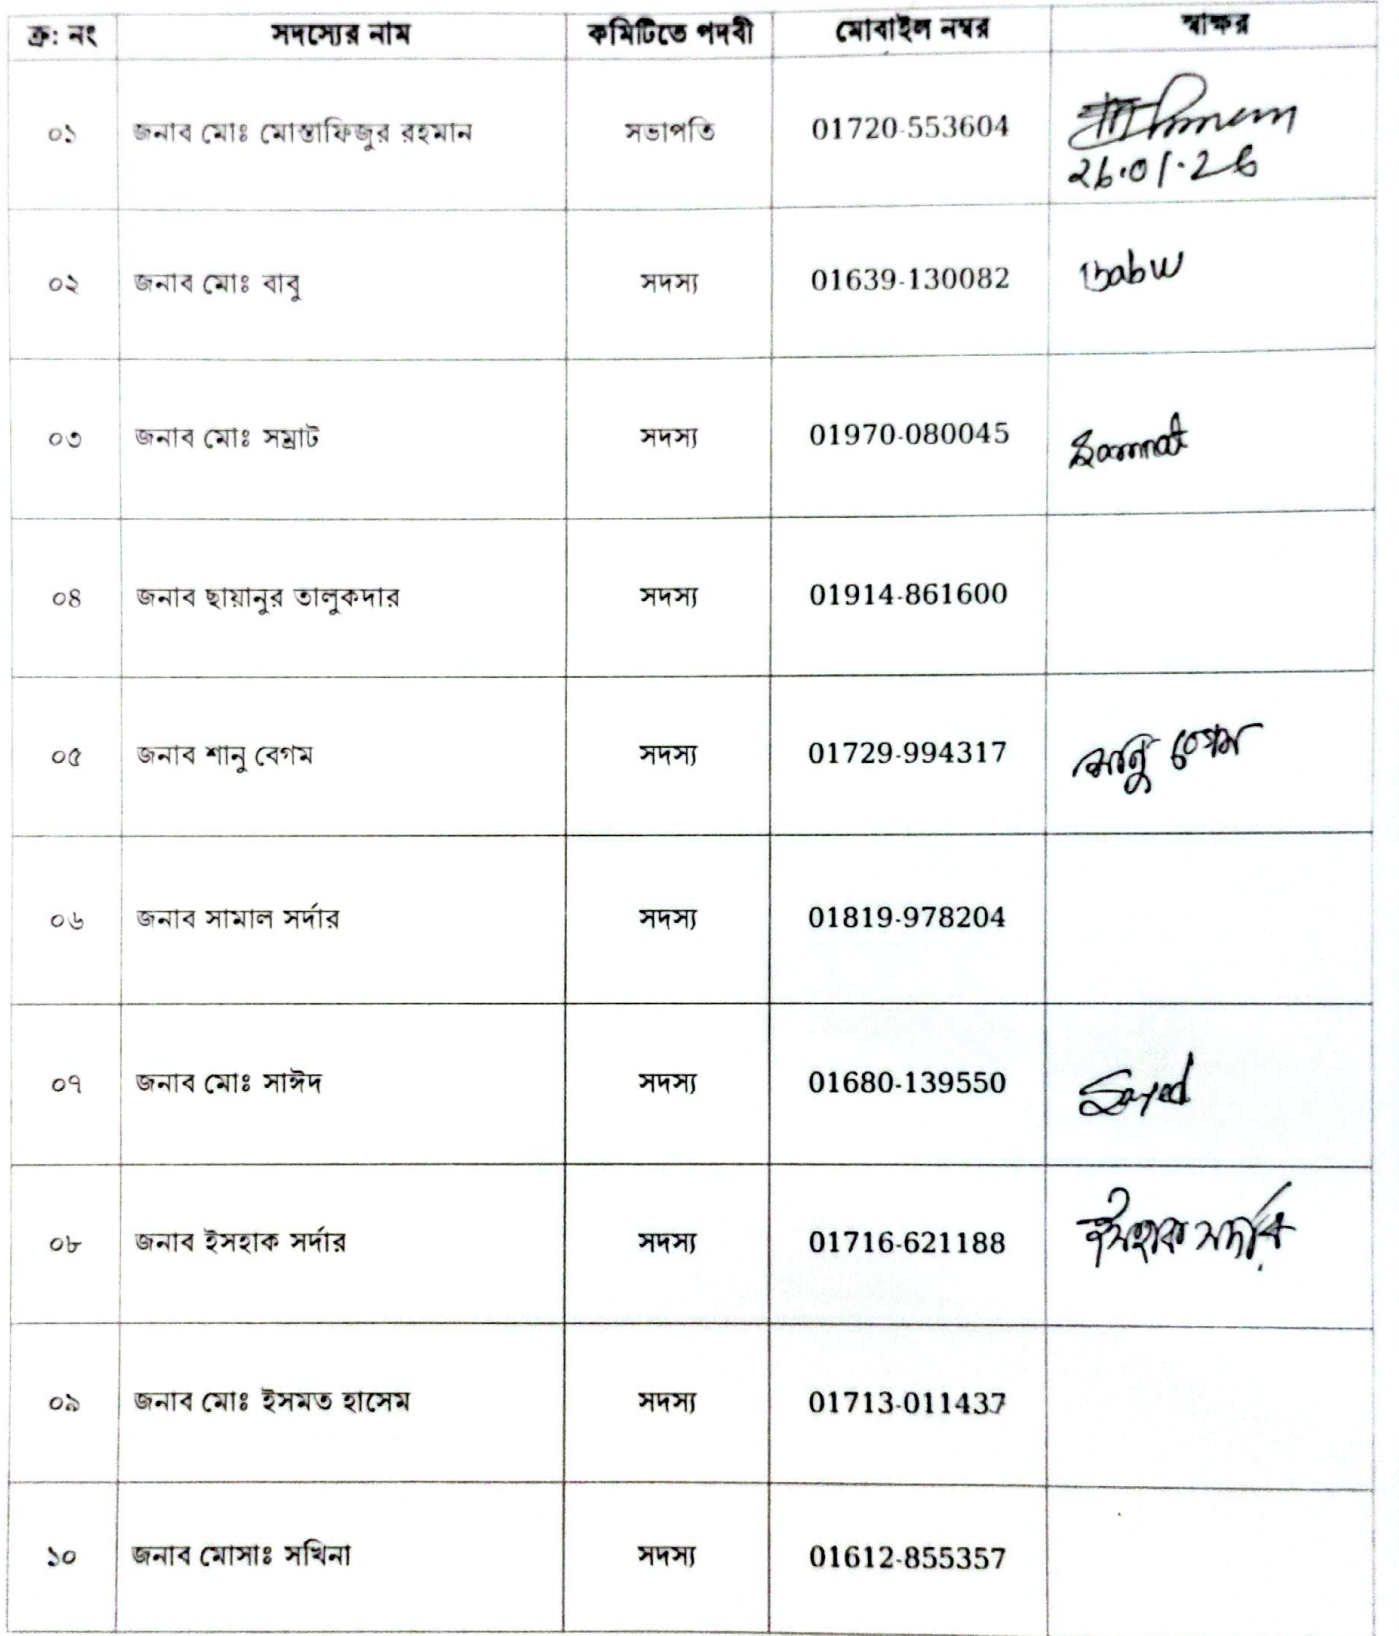 ক্র: নং সদস্যের নাম কমিটিতে পদবী মোবাইল নম্বর স্বাক্ষর
০১ জনাব মোঃ মোস্তাফিজুর রহমান সভাপতি 01720-553604
26.01.26
০২ জনাব মোঃ বাবু সদস্য 01639-130082 Babu
০৩ জনাব মোঃ সম্রাট সদস্য 01970-080045 Samrat
০৪ জনাব ছায়ানুর তালুকদার সদস্য 01914-861600
০৫ জনাব শানু বেগম সদস্য 01729-994317 শানু বেগম
০৬ জনাব সামাল সর্দার সদস্য 01819-978204
০৭ জনাব মোঃ সাঈদ সদস্য 01680-139550 Sayed
০৮ জনাব ইসহাক সর্দার সদস্য 01716-621188 ইসহাক সর্দার
০৯ জনাব মোঃ ইসমত হাসেম সদস্য 01713-011437
১০ জনাব মোসাঃ সখিনা সদস্য 01612-855357